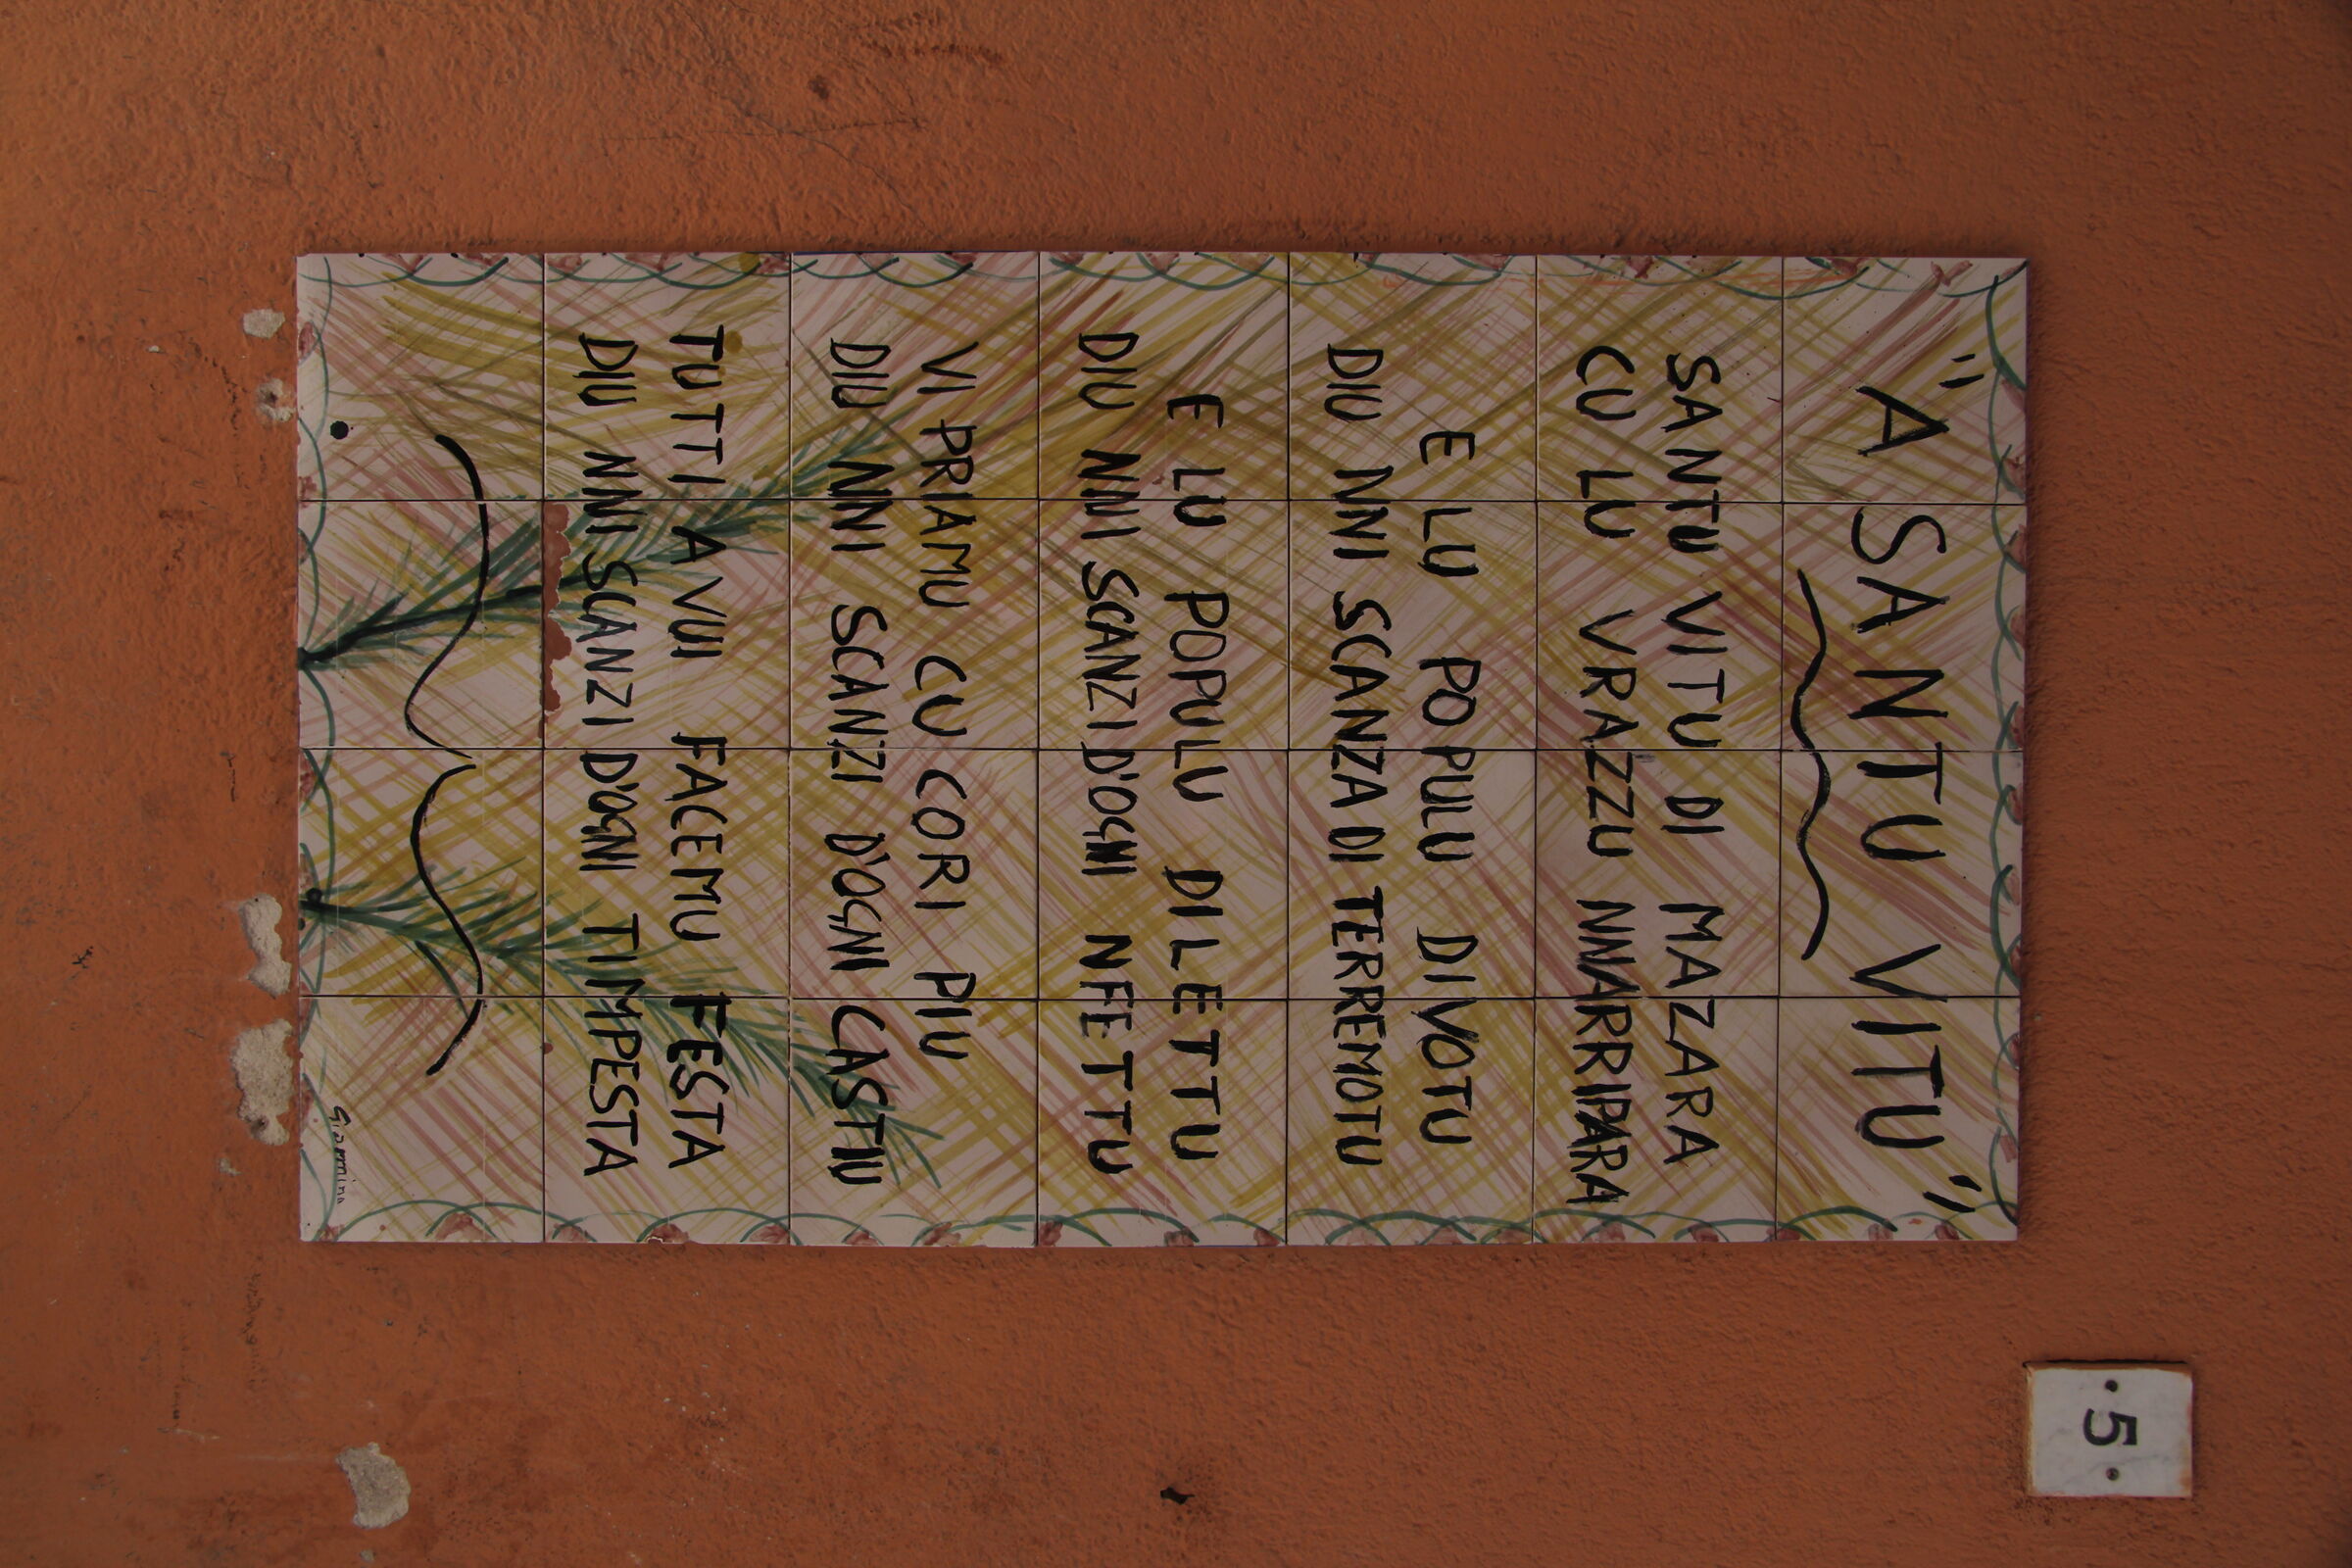 "A SANTU VITU"
SANTU VITU DI MAZARA
CU LU VRAZZU NNARRIPARA
E LU POPULU DIVOTU
DIU NNI SCANZA DI TERREMOTU
E LU POPULU DILETTU
DIU NNI SCANZI D'OGNI NFETTU
VI PRIAMU CU CORI PIU
DIU NNI SCANZI D'OGNI CASTIU
TUTTI A VUI FACEMU FESTA
DIU NNI SCANZI D'OGNI TIMPESTA
Giannino
5